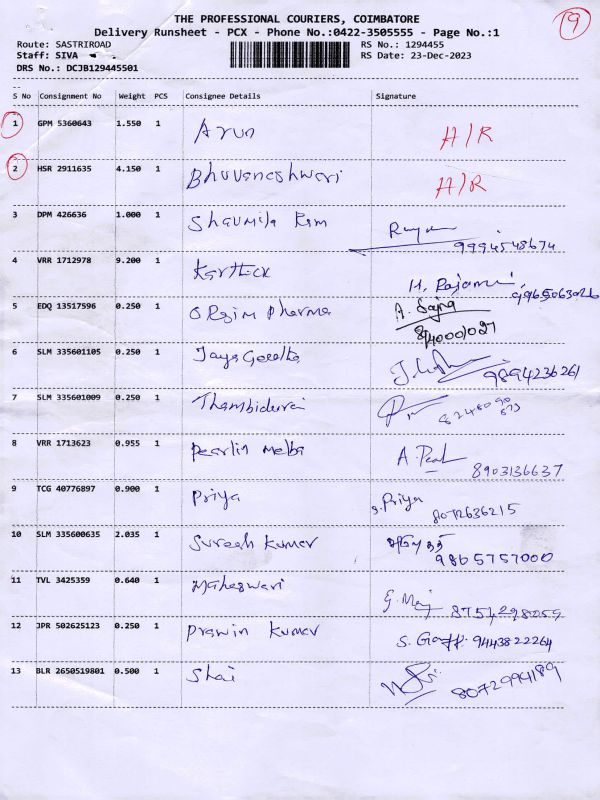 THE PROFESSIONAL COURIERS, COIMBATORE
19
Delivery Runsheet - PCX - Phone No.:0422-3505555 - Page No.:1
Route: SASTRIROAD RS No.: 1294455
Staff: SIVA RS Date: 23-Dec-2023
DRS No.: DCJB129445501
S No Consignment No Weight PCS Consignee Details Signature
1 GPM 5360643 1.550 1 Arun A/R
2 HSR 2911635 4.150 1 Bhuvaneshwari A/R
3 DPM 426636 1.000 1 Sharmila Ram
9994548674
4 VRR 1712978 9.200 1 Karthick M. Rajamani
9965063026
5 EDQ 13517596 0.250 1 Pharma A. Sajna
6 SLM 335601105 0.250 1 Jaya
9894236261
7 SLM 335601009 0.250 1 Thambidurai
8248090
673
8 VRR 1713623 0.955 1 Pearlin Melba A. Pearl
8903136637
9 TCG 40776897 0.900 1 Priya S. Priya
8072636215
10 SLM 335600635 2.035 1 Suresh Kumar
9865757000
11 TVL 3425359 0.640 1 Maheswari
8754298059
12 JPR 502625123 0.250 1 Prawin Kumar 9443822264
13 BLR 2650519801 0.500 1 Shai
8072994189